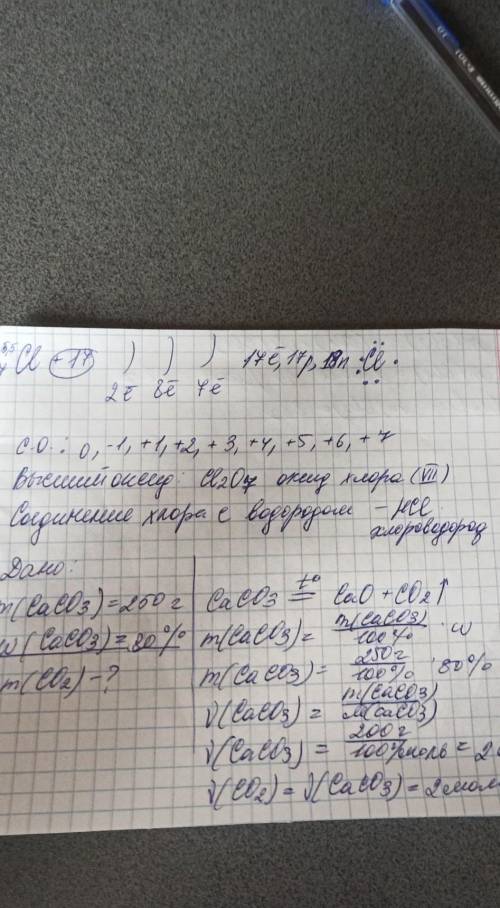 Cl +17 ) ) ) 17ē, 17p, 18n :Cl·
2ē 8ē 7ē
С.О.: 0, -1, +1, +2, +3, +4, +5, +6, +7
Высший оксид: Cl2O7 оксид хлора (VII)
Соединение хлора с водородом – HCl
хлороводород
Дано:
m(CaCO3) = 250 г
w(CaCO3) = 80%
m(CO2) – ?
CaCO3 t° = CaO + CO2↑
m(CaCO3) = m(CaCO3) / 100% · w
m(CaCO3) = 250 г / 100% · 80%
ν(CaCO3) = m(CaCO3) / M(CaCO3)
ν(CaCO3) = 200 г / 100 г/моль = 2
ν(CO2) = ν(CaCO3) = 2 мол